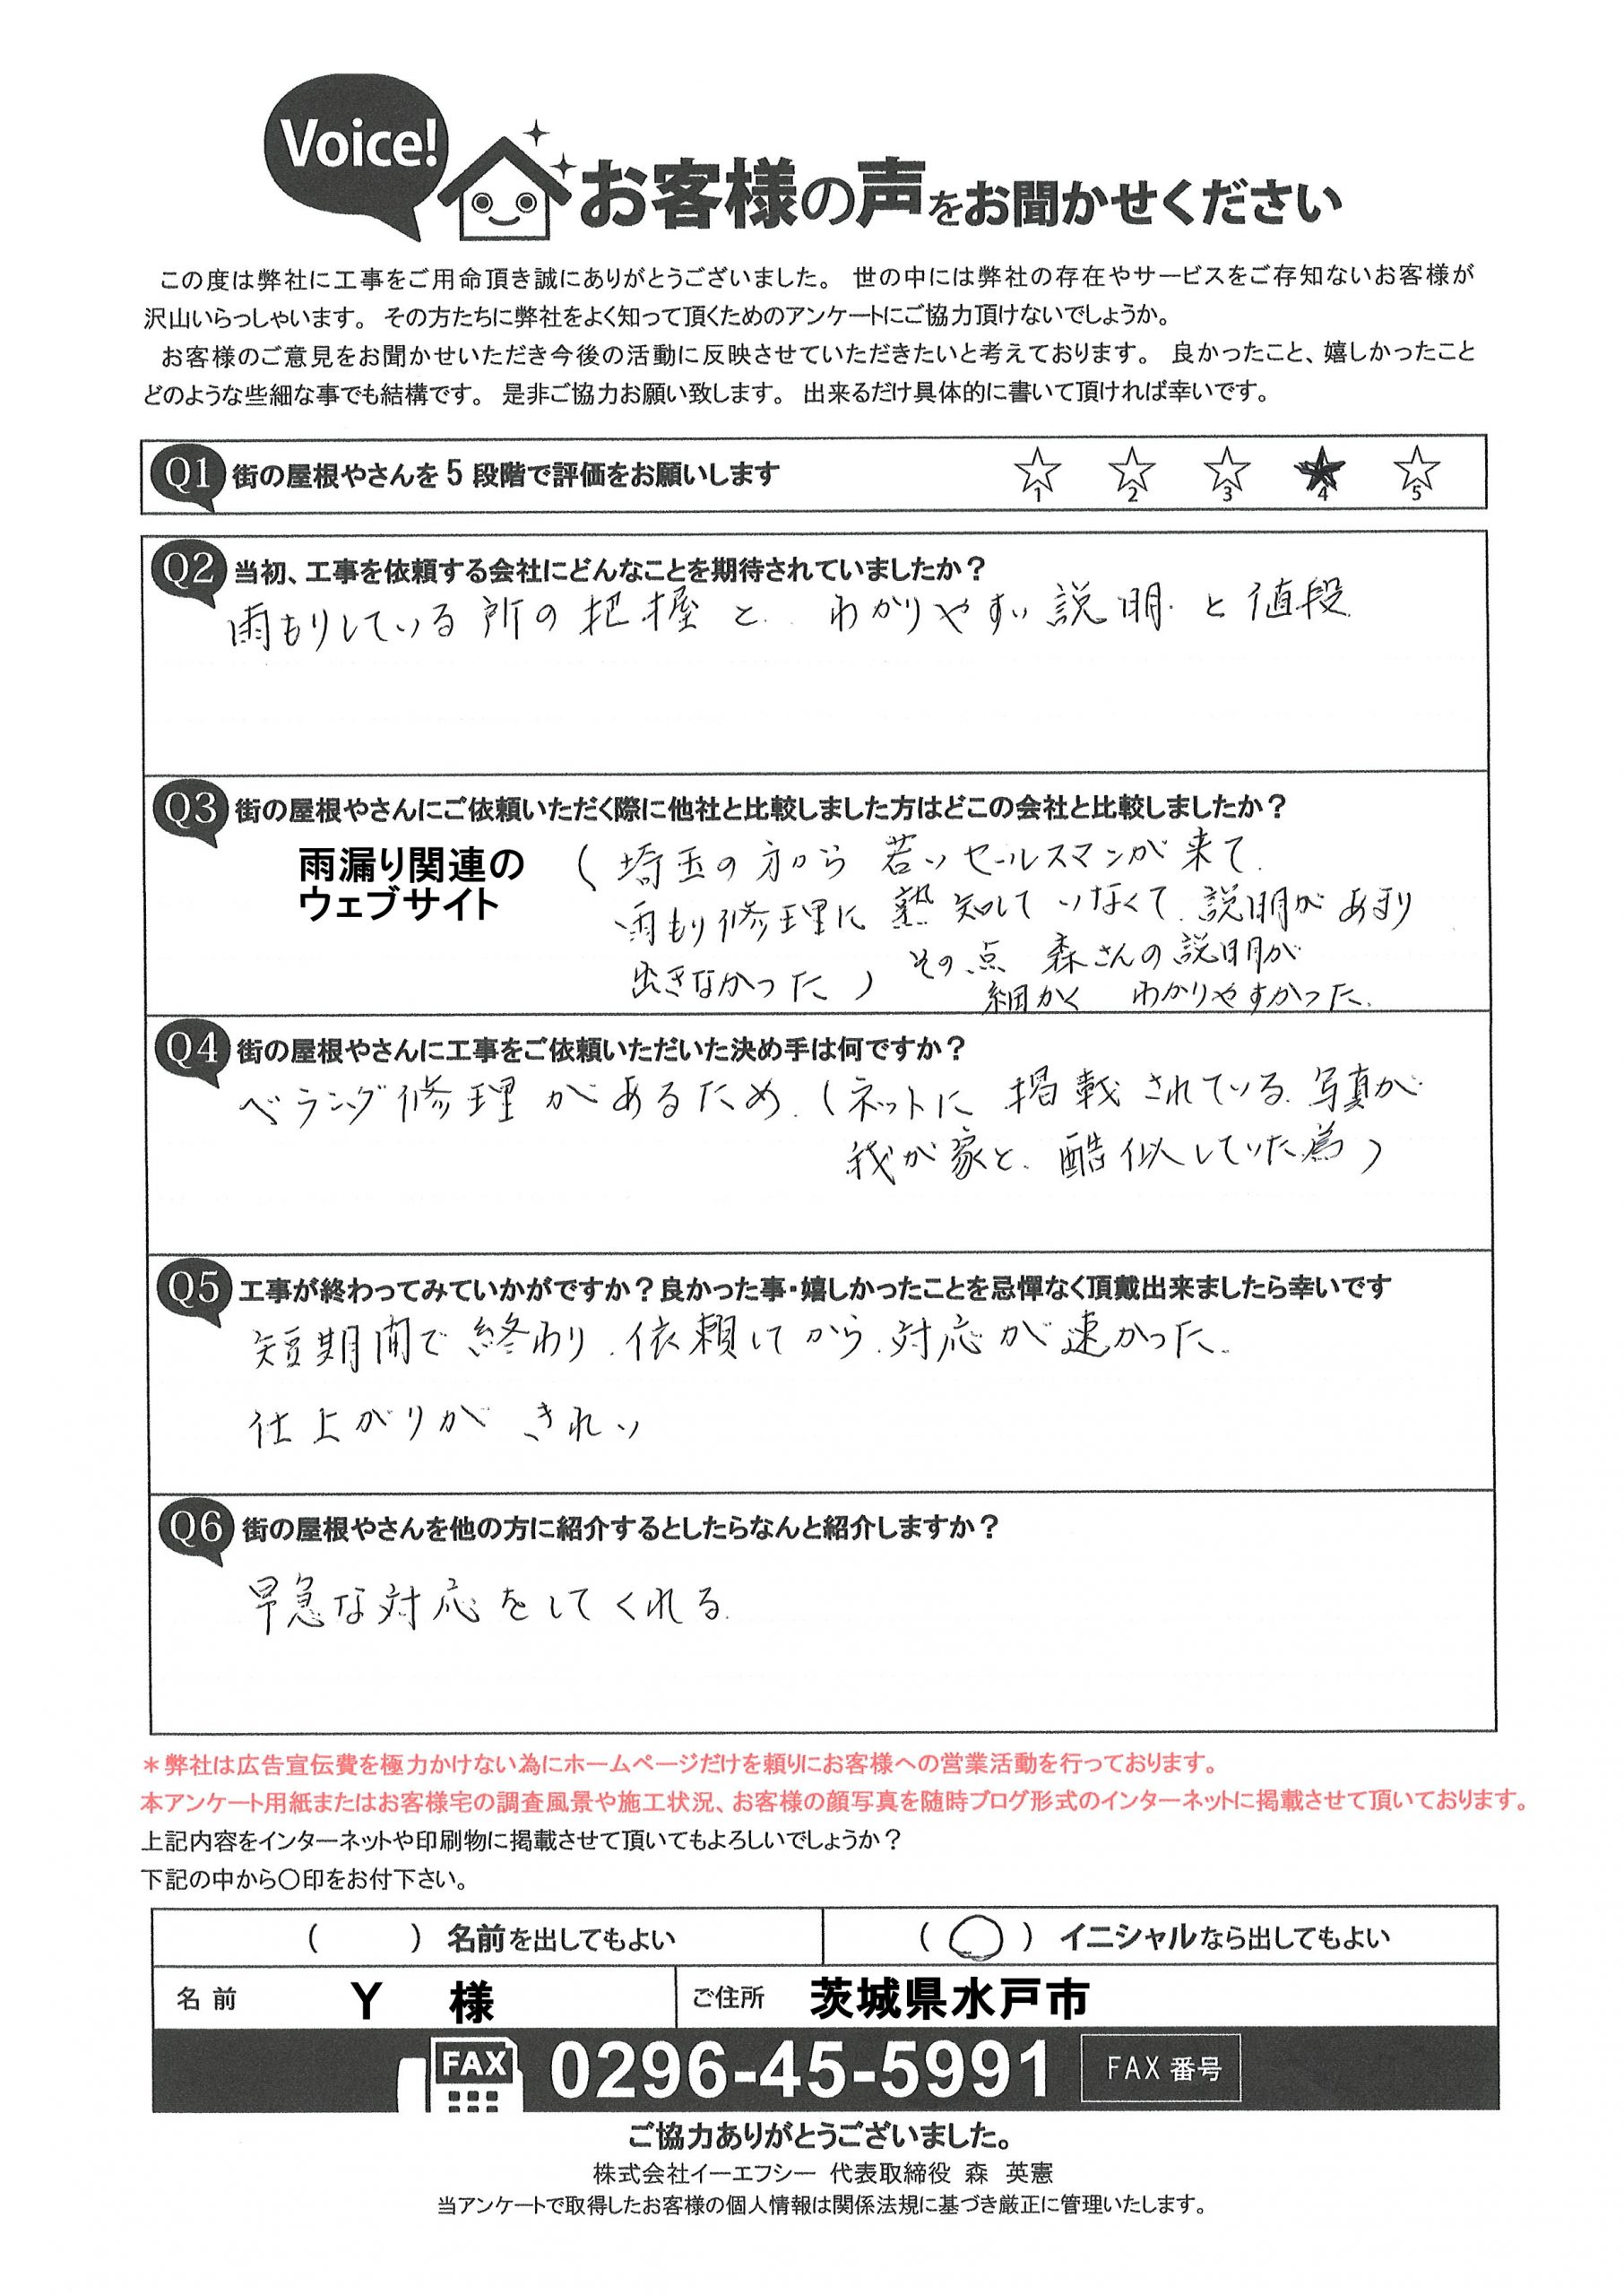 Voice!
お客様の声をお聞かせください
この度は弊社に工事をご用命頂き誠にありがとうございました。 世の中には弊社の存在やサービスをご存知ないお客様が
沢山いらっしゃいます。 その方たちに弊社をよく知って頂くためのアンケートにご協力頂けないでしょうか。
お客様のご意見をお聞かせいただき今後の活動に反映させていただきたいと考えております。 良かったこと、嬉しかったこと
どのような些細な事でも結構です。 是非ご協力お願い致します。 出来るだけ具体的に書いて頂ければ幸いです。
Q1 街の屋根やさんを5段階で評価をお願いします ☆1 ☆2 ☆3 ★4 ☆5
Q2 当初、工事を依頼する会社にどんなことを期待されていましたか？
雨もりしている所の把握と わかりやすい説明と値段
Q3 街の屋根やさんにご依頼いただく際に他社と比較しました方はどこの会社と比較しましたか？
雨漏り関連の
ウェブサイト
(埼玉の方から若いセールスマンが来て
雨もり修理に熟知していなくて説明があまり
出きなかった)
その点 森さんの説明が
細かく わかりやすかった
Q4 街の屋根やさんに工事をご依頼いただいた決め手は何ですか？
ベランダ修理があるため(ネットに掲載されている写真が
我が家と酷似していた為)
Q5 工事が終わってみていかがですか？良かった事・嬉しかったことを忌憚なく頂戴出来ましたら幸いです
短期間で終わり依頼してから対応が速かった
仕上がりがきれい
Q6 街の屋根やさんを他の方に紹介するとしたらなんと紹介しますか？
早急な対応をしてくれる
＊弊社は広告宣伝費を極力かけない為にホームページだけを頼りにお客様への営業活動を行っております。
本アンケート用紙またはお客様宅の調査風景や施工状況、お客様の顔写真を随時ブログ形式のインターネットに掲載させて頂いております。
上記内容をインターネットや印刷物に掲載させて頂いてもよろしいでしょうか？
下記の中から〇印をお付下さい。
( ) 名前を出してもよい (〇) イニシャルなら出してもよい
名前 Y 様 ご住所 茨城県水戸市
FAX 0296-45-5991 FAX番号
ご協力ありがとうございました。
株式会社イーエフシー 代表取締役 森 英憲
当アンケートで取得したお客様の個人情報は関係法規に基づき厳正に管理いたします。